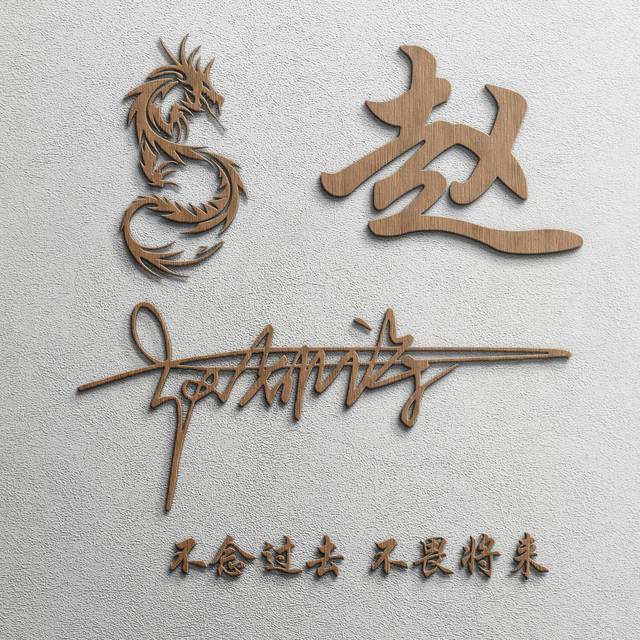 赵
不念过去 不畏将来